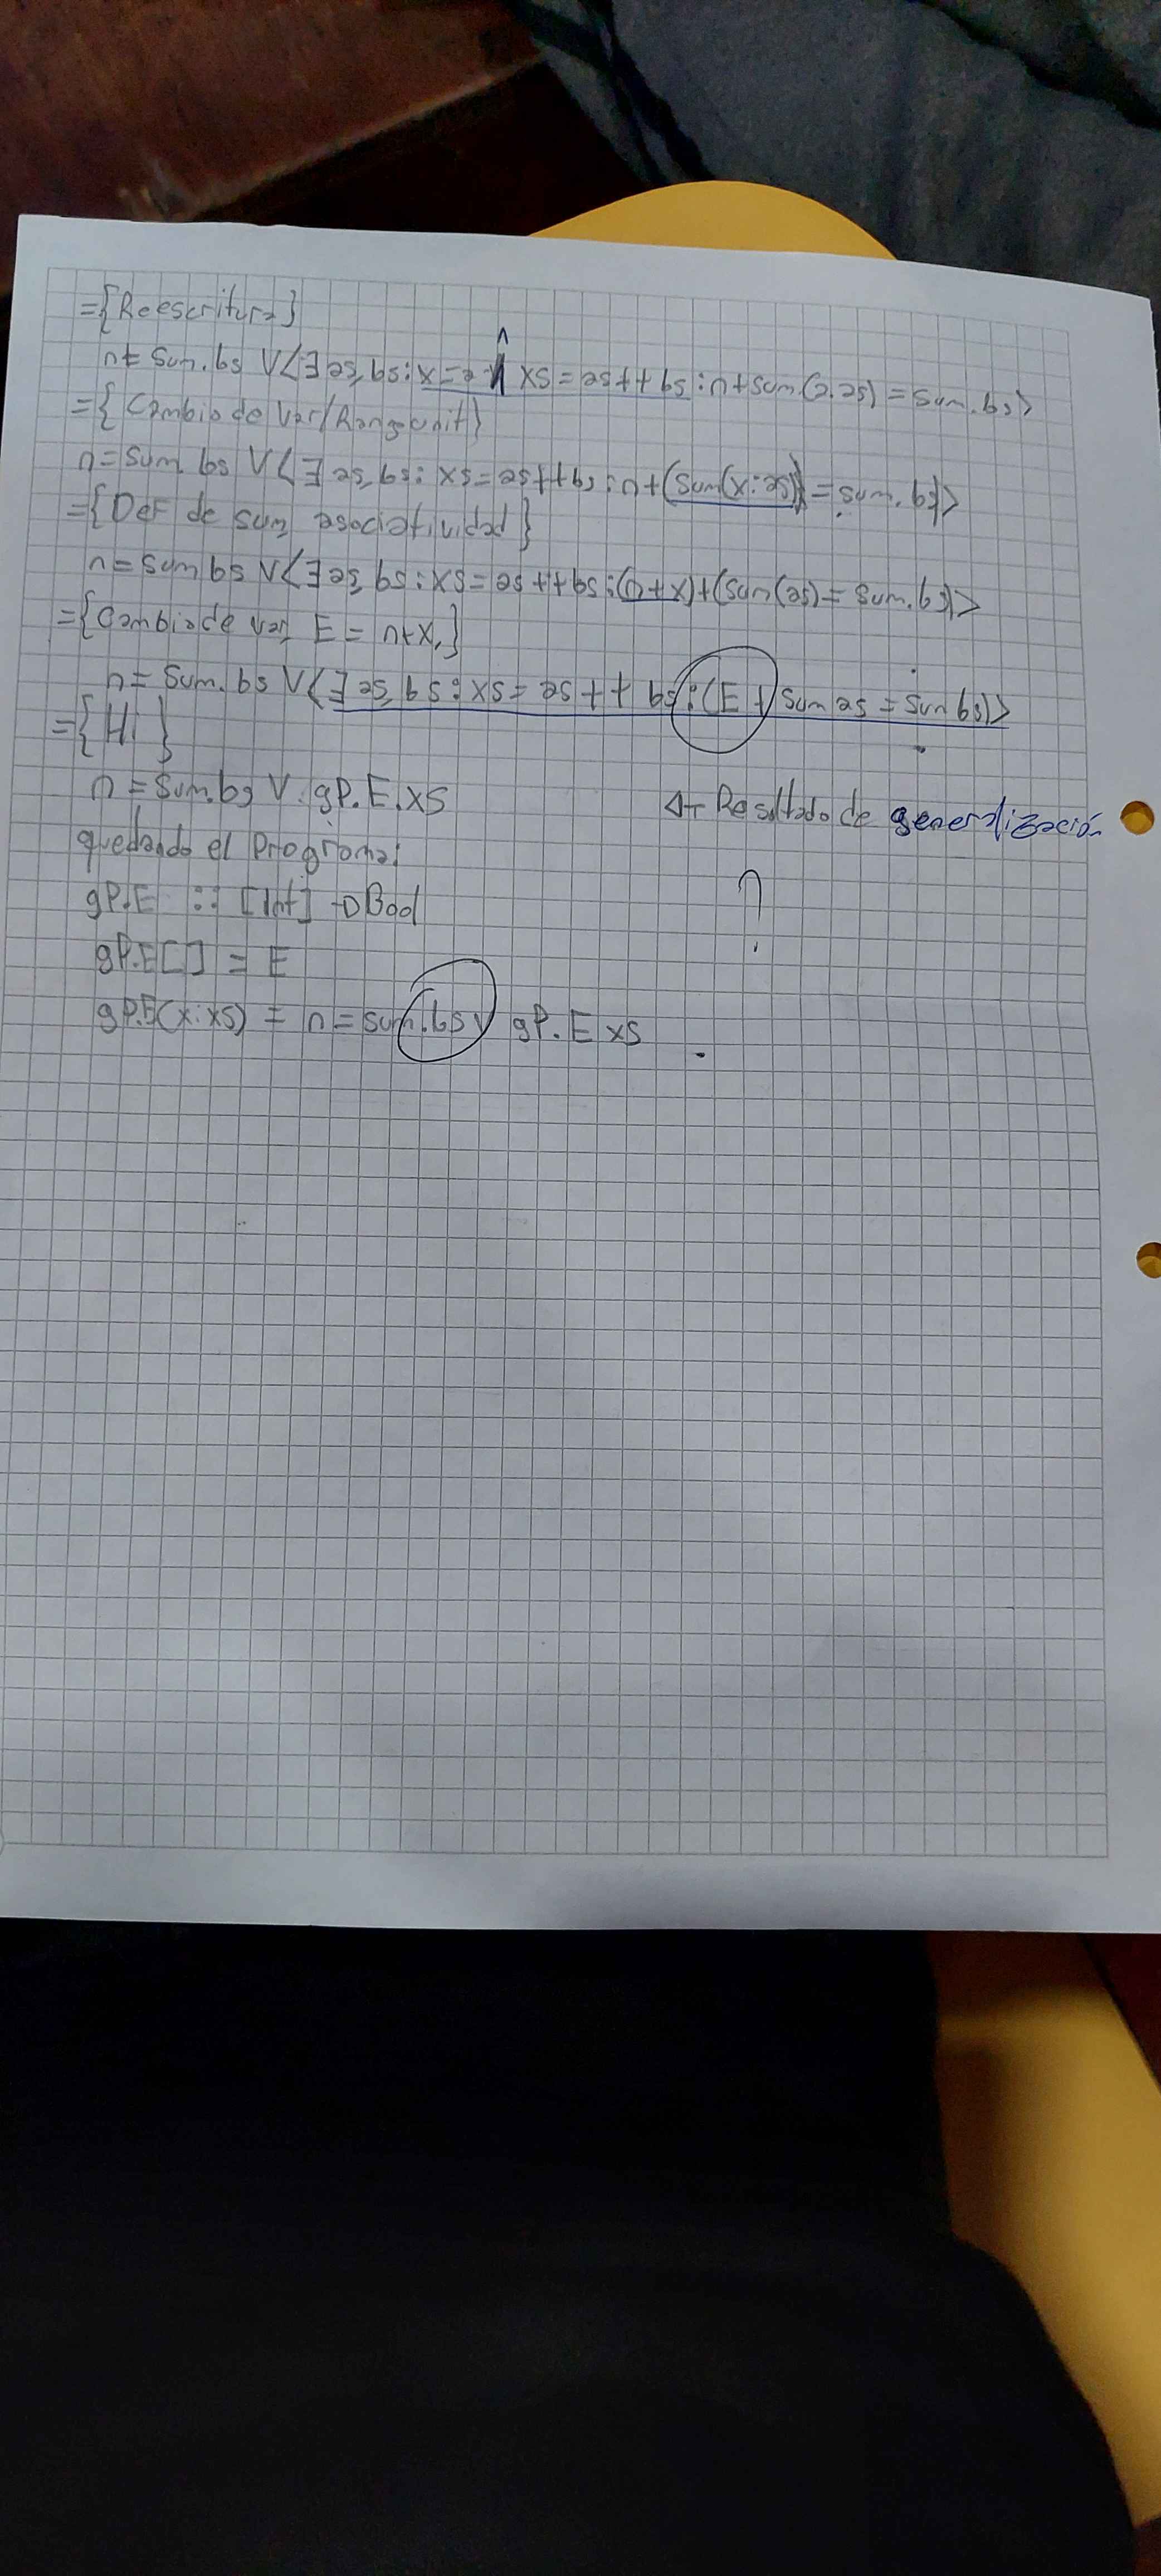 ={Reescritura}
n≠ sum.bs ∨⟨∃as,bs:x=a ∧ xs=as++bs:n+sum.(a.as)=sum.bs⟩
={Cambio de var/Rango unit}
n=sum bs ∨⟨∃as,bs:xs=as++bs:n+(sum(x:as))=sum.bs)⟩
={Def de sum, asociatividad}
n=sum bs ∨⟨∃as,bs:xs=as++bs:(n+x)+(sum(as)=sum.bs)⟩
={Cambio de var E=n+x,}
n=sum.bs ∨⟨∃as,bs:xs=as++bs:(E+sum as=sum bs)⟩
={Hi}
n=sum.bs ∨ gP.E.xs
Resultado de generalización
quedando el Programa:
?
gP.E :: [Int] →Bool
gP.E[] = E
gP.E(x:xs) = n=sum.bs∨ gP.E xs